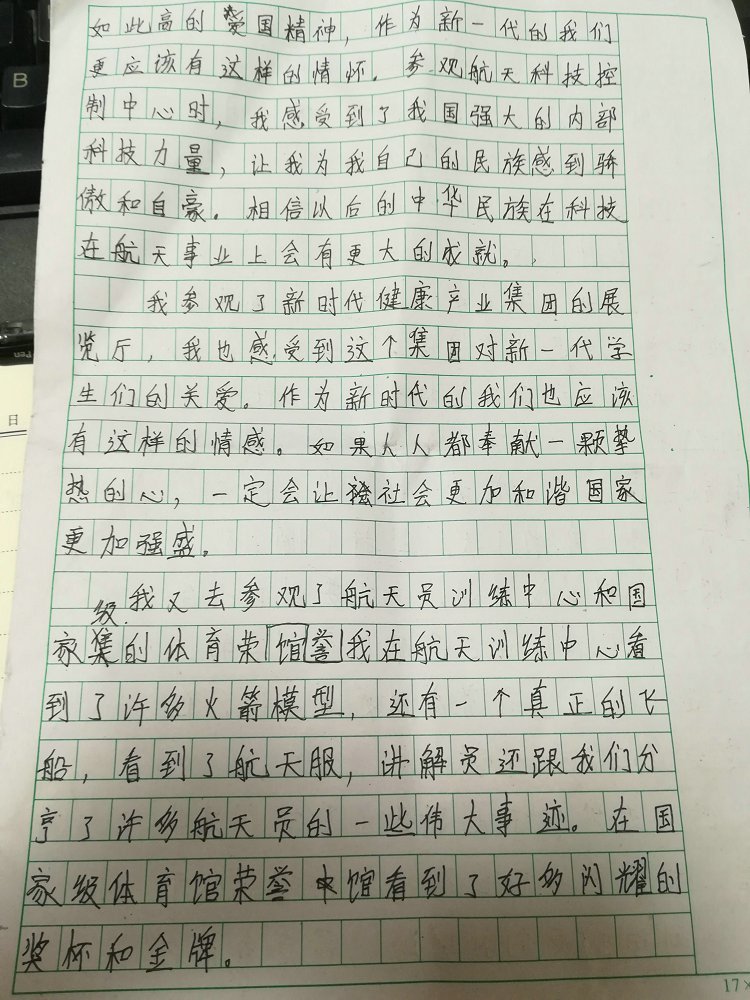 如此高的爱国精神，作为新一代的我们
更应该有这样的情怀。参观航天科技控
制中心时，我感受到了我国强大的内部
科技力量，让我为我自己的民族感到骄
傲和自豪。相信以后的中华民族在科技
在航天事业上会有更大的成就。
我参观了新时代健康产业集团的展
览厅，我也感受到这个集团对新一代学
生们的关爱。作为新时代的我们也应该
有这样的情感。如果人人都奉献一颗挚
热的心，一定会让社会更加和谐国家
更加强盛。
我又去参观了航天员训练中心和国
级
家集的体育荣馆誉我在航天训练中心看
到了许多火箭模型，还有一个真正的飞
船，看到了航天服，讲解员还跟我们分
享了许多航天员的一些伟大事迹。在国
家级体育馆荣誉中馆看到了好多闪耀的
奖杯和金牌。
17×
B
Pen
日